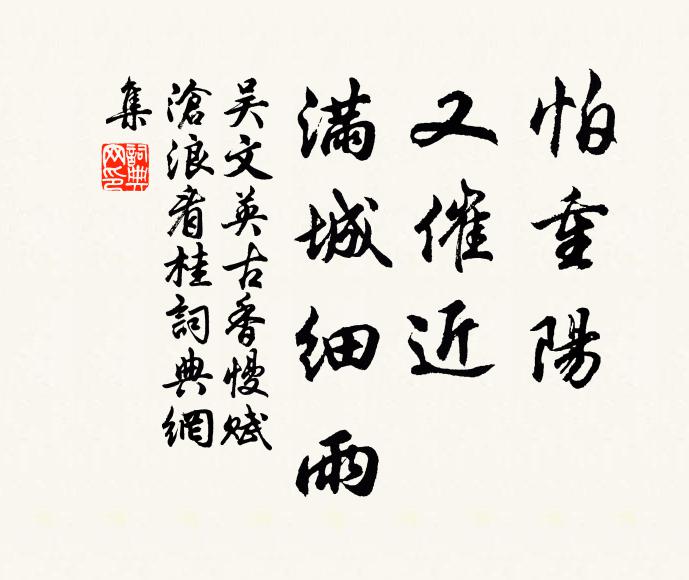 怕重陽
又催近
滿城細雨
吴文英古香慢賦
滄浪看桂詞典網
集
詞典
网印